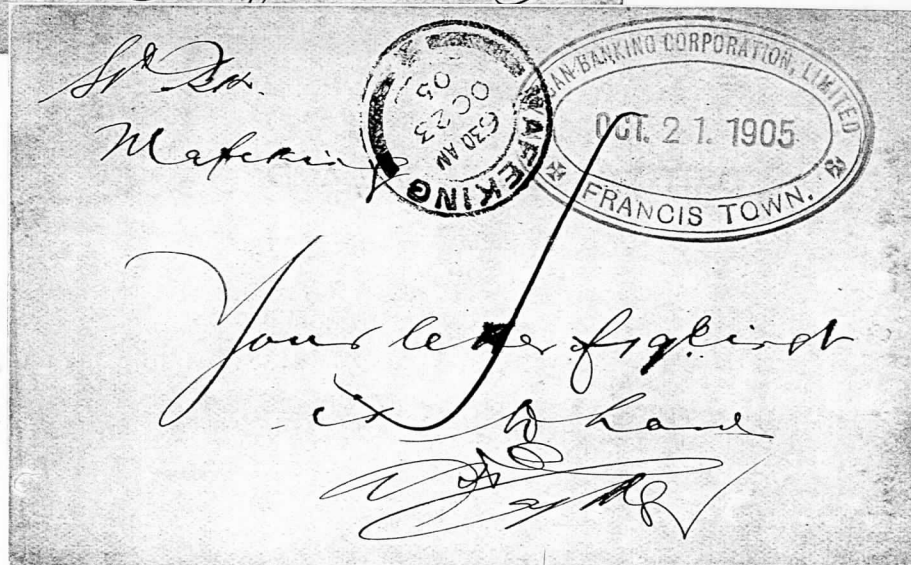 Mafeking
MAFEKING
6 30 AM
OC 23
05
AN BANKING CORPORATION, LIMITED
OCT. 21. 1905
FRANCIS TOWN.
Your letter of 19th inst
is to hand